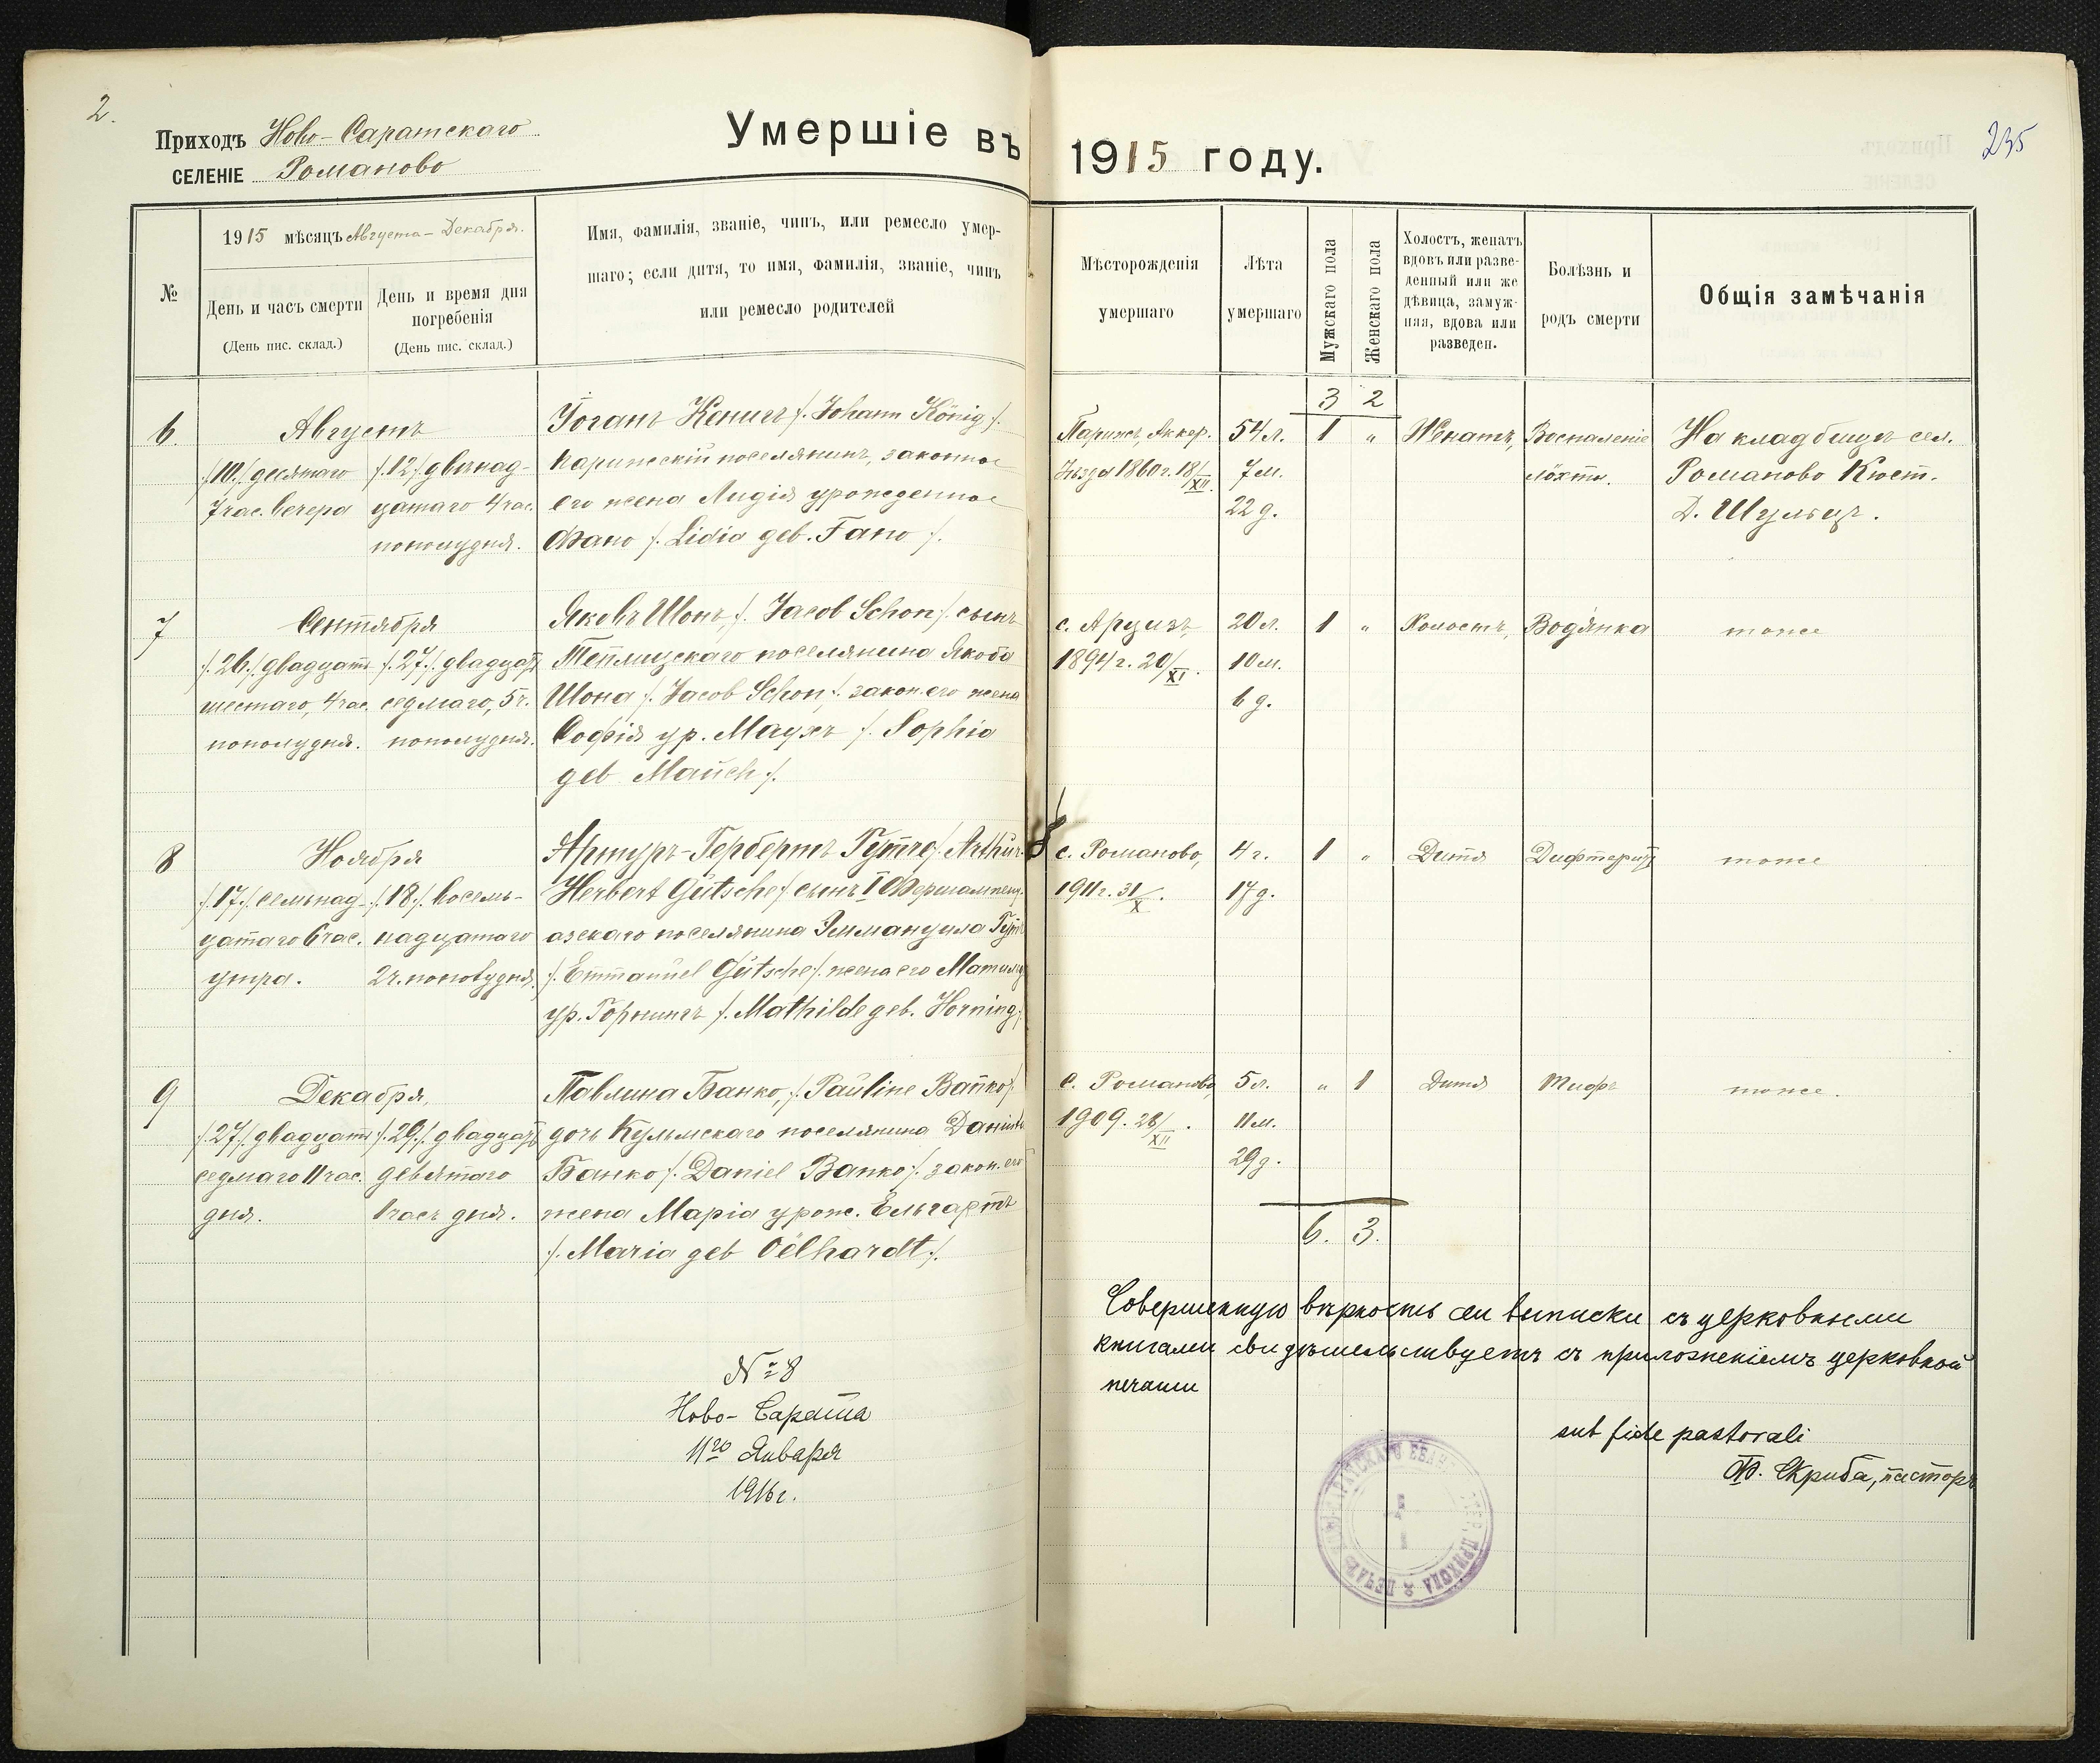 2.
Приходъ Ново-Саратскаго
селеніе Романово
Умершіе въ 1915 году.
235
№
1915 мѣсяцъ Августа - Декабря.
День и часъ смерти
(День пис. склад.)
День и время дня
погребенія
(День пис. склад.)
Имя, фамилія, званіе, чинъ, или ремесло умер-
шаго; если дитя, то имя, фамилія, званіе, чинъ
или ремесло родителей
Мѣсторожденія
умершаго
Лѣта
умершаго
Мужскаго пола
Женскаго пола
Холостъ, женатъ
вдовъ или разве-
денный или же
дѣвица, замуж-
няя, вдова или
разведен.
Болѣзнь и
родъ смерти
Общія замѣчанія
3 2
6.
Августъ
/.10./ десятаго
7 час. вечера
/.12./ двѣнад-
цатаго 4 час.
пополудня.
Іоганъ Кенигъ /. Johann König /.
Парижскій поселянинъ, законное
его жена Лидія урожденное
Фано /. Lidia geb. Fano /.
Парижъ, Аккер.
уѣзда 1860 г. 18/XII.
54 л.
7 м.
22 д.
1 „
Женатъ,
Воспаленіе
На кладбищѣ сел.
Романово Кюст.
Д. Шульцъ.
7
Сентября
/.26./ двадцать
шестаго, 4 час.
пополудня.
/.27./ двадцать
седмаго, 5 ч.
пополудня.
Яковъ Шонъ, /. Jacob Schon /. сынъ
Теплицскаго поселянина Якоба
Шона /. Jacob Schon /. закон. его жена
Софія ур. Маухъ /. Sophia
geb Mauch /.
с. Арцизъ,
1894 г. 20/XI.
20 л.
10 м.
6 д.
1 „
Холостъ,
Водянка
тоже
8
Ноября
/.17./ семьнад-
цатаго 6 час.
утра.
/.18./ восемь-
надцатаго
2 ч. пополудня.
Артуръ-Гербертъ Гутче /. Arthur-
Herbert Gutsche /. сынъ I Фершампену-
азскаго поселянина Эммануила Гутч
/. Emmanuel Gutsche /. жена его Матильд
ур. Горнингъ /. Mathilde geb. Horning /.
с. Романово,
1911 г. 31/X.
4 г.
17 д.
1 „
Дитя
Дифтеритъ
тоже
9
Декабря,
/.27./ двадцать
седмаго 11 час.
дня.
/.29./ двадцать
девятаго
1 часъ дня.
Павлина Банко, /. Pauline Banko /.
дочь Кульмскаго поселянина Даніила
Банко /. Daniel Banko /. закон. его
жена Марія урож. Ельгартъ
/. Maria geb Oelhardt /.
с. Романово,
1909. 28/XII.
5 л.
11 м.
29 д.
„ 1
Дитя
Тифъ
тоже.
6. 3.
Совершенную вѣрность сей выписки съ церковными
книгами свидѣтельствуетъ съ приложеніемъ церковной
печати
sub fide pastorali
Ф. Скриба, пасторъ
№ 8
Ново-Сарата
11го Января
1916 г.